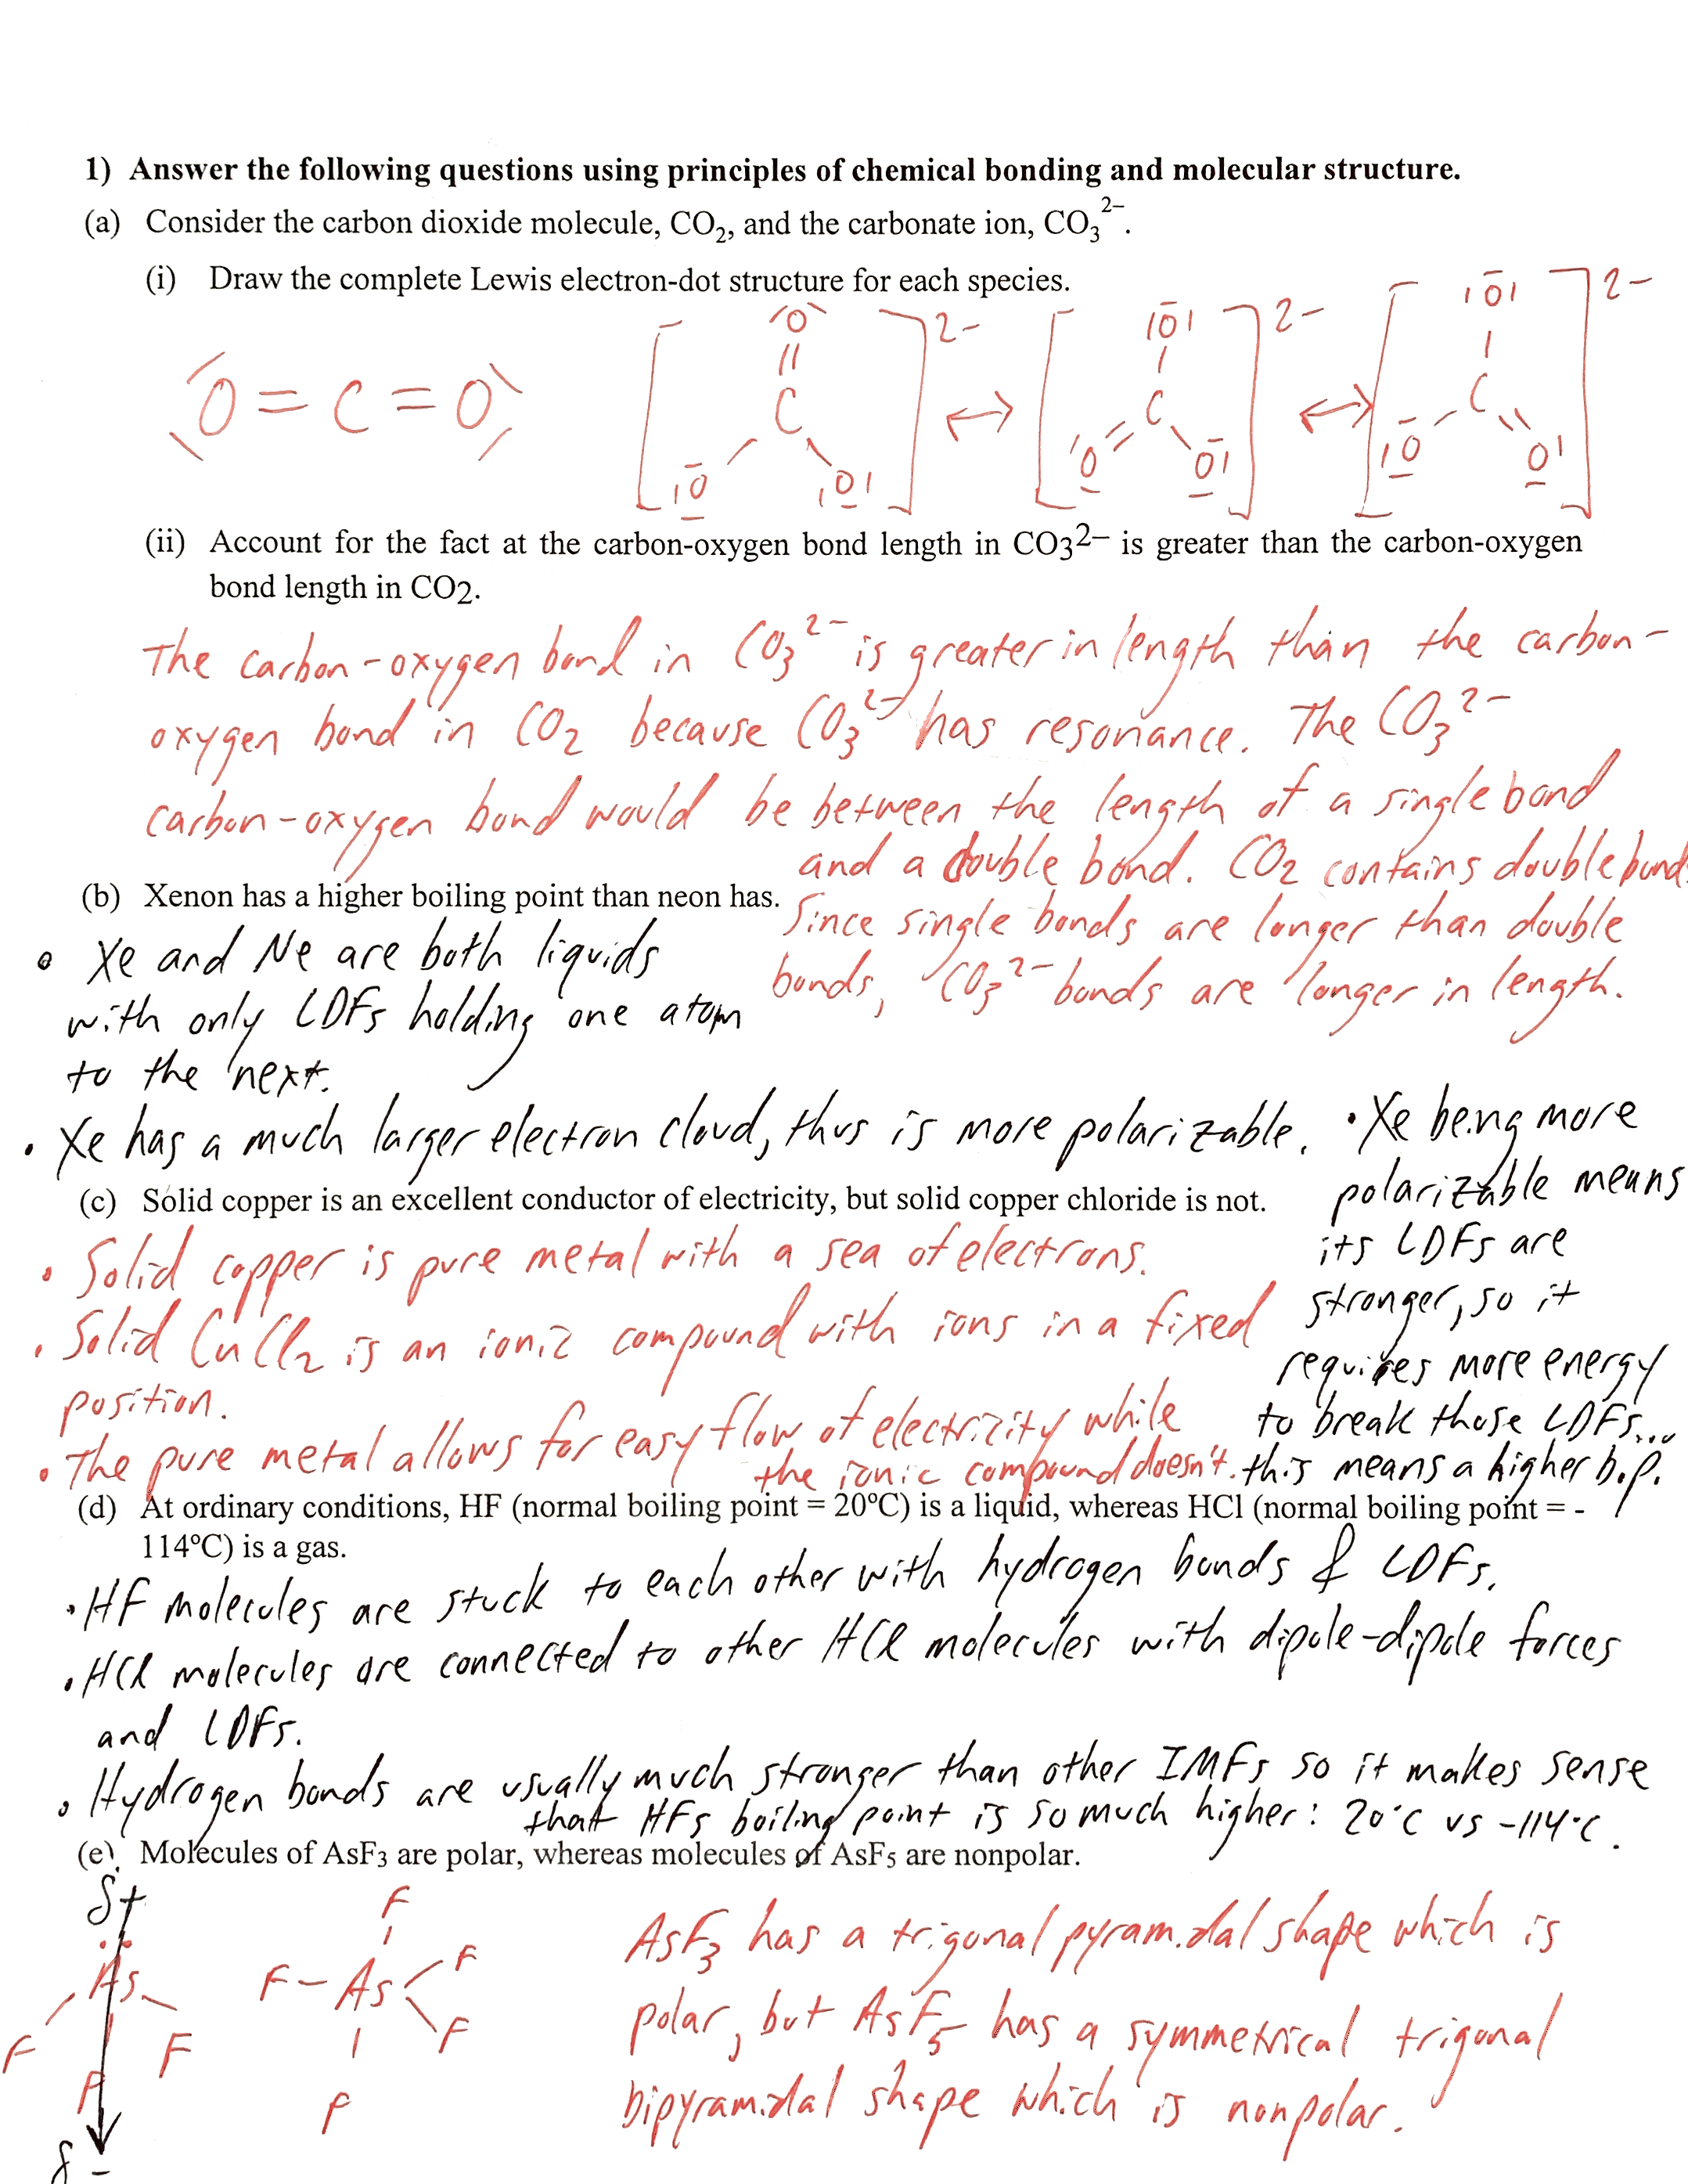 1) Answer the following questions using principles of chemical bonding and molecular structure.
(a) Consider the carbon dioxide molecule, CO₂, and the carbonate ion, CO₃²⁻.
(i) Draw the complete Lewis electron-dot structure for each species.
O = C = O
[O = C - O - O]²⁻ ↔ [O - C = O - O]²⁻ ↔ [O - C - O = O]²⁻
(ii) Account for the fact at the carbon-oxygen bond length in CO3²⁻ is greater than the carbon-oxygen
bond length in CO2.
The carbon-oxygen bond in CO₃²⁻ is greater in length than the carbon-
oxygen bond in CO₂ because CO₃²⁻ has resonance. The CO₃²⁻
carbon-oxygen bond would be between the length of a single bond
and a double bond. CO₂ contains double bonds.
Since single bonds are longer than double
bonds, CO₃²⁻ bonds are longer in length.
(b) Xenon has a higher boiling point than neon has.
• Xe and Ne are both liquids
with only LDFs holding one atom
to the next.
• Xe has a much larger electron cloud, thus is more polarizable.
• Xe being more
polarizable means
its LDFs are
stronger, so it
requires more energy
to break those LDFs...
this means a higher b.p.
(c) Solid copper is an excellent conductor of electricity, but solid copper chloride is not.
• Solid copper is pure metal with a sea of electrons.
• Solid CuCl₂ is an ionic compound with ions in a fixed
position.
• The pure metal allows for easy flow of electricity while
the ionic compound doesn't.
(d) At ordinary conditions, HF (normal boiling point = 20ºC) is a liquid, whereas HCl (normal boiling point = -
114ºC) is a gas.
• HF molecules are stuck to each other with hydrogen bonds & LDFs.
• HCl molecules are connected to other HCl molecules with dipole-dipole forces
and LDFs.
• Hydrogen bonds are usually much stronger than other IMFs so it makes sense
that HFs boiling point is so much higher: 20°C vs -114°C.
(e) Molecules of AsF3 are polar, whereas molecules of AsF5 are nonpolar.
δ+
As
F F F
δ-
F
F - As F
F
F
AsF₃ has a trigonal pyramidal shape which is
polar, but AsF₅ has a symmetrical trigonal
bipyramidal shape which is nonpolar.